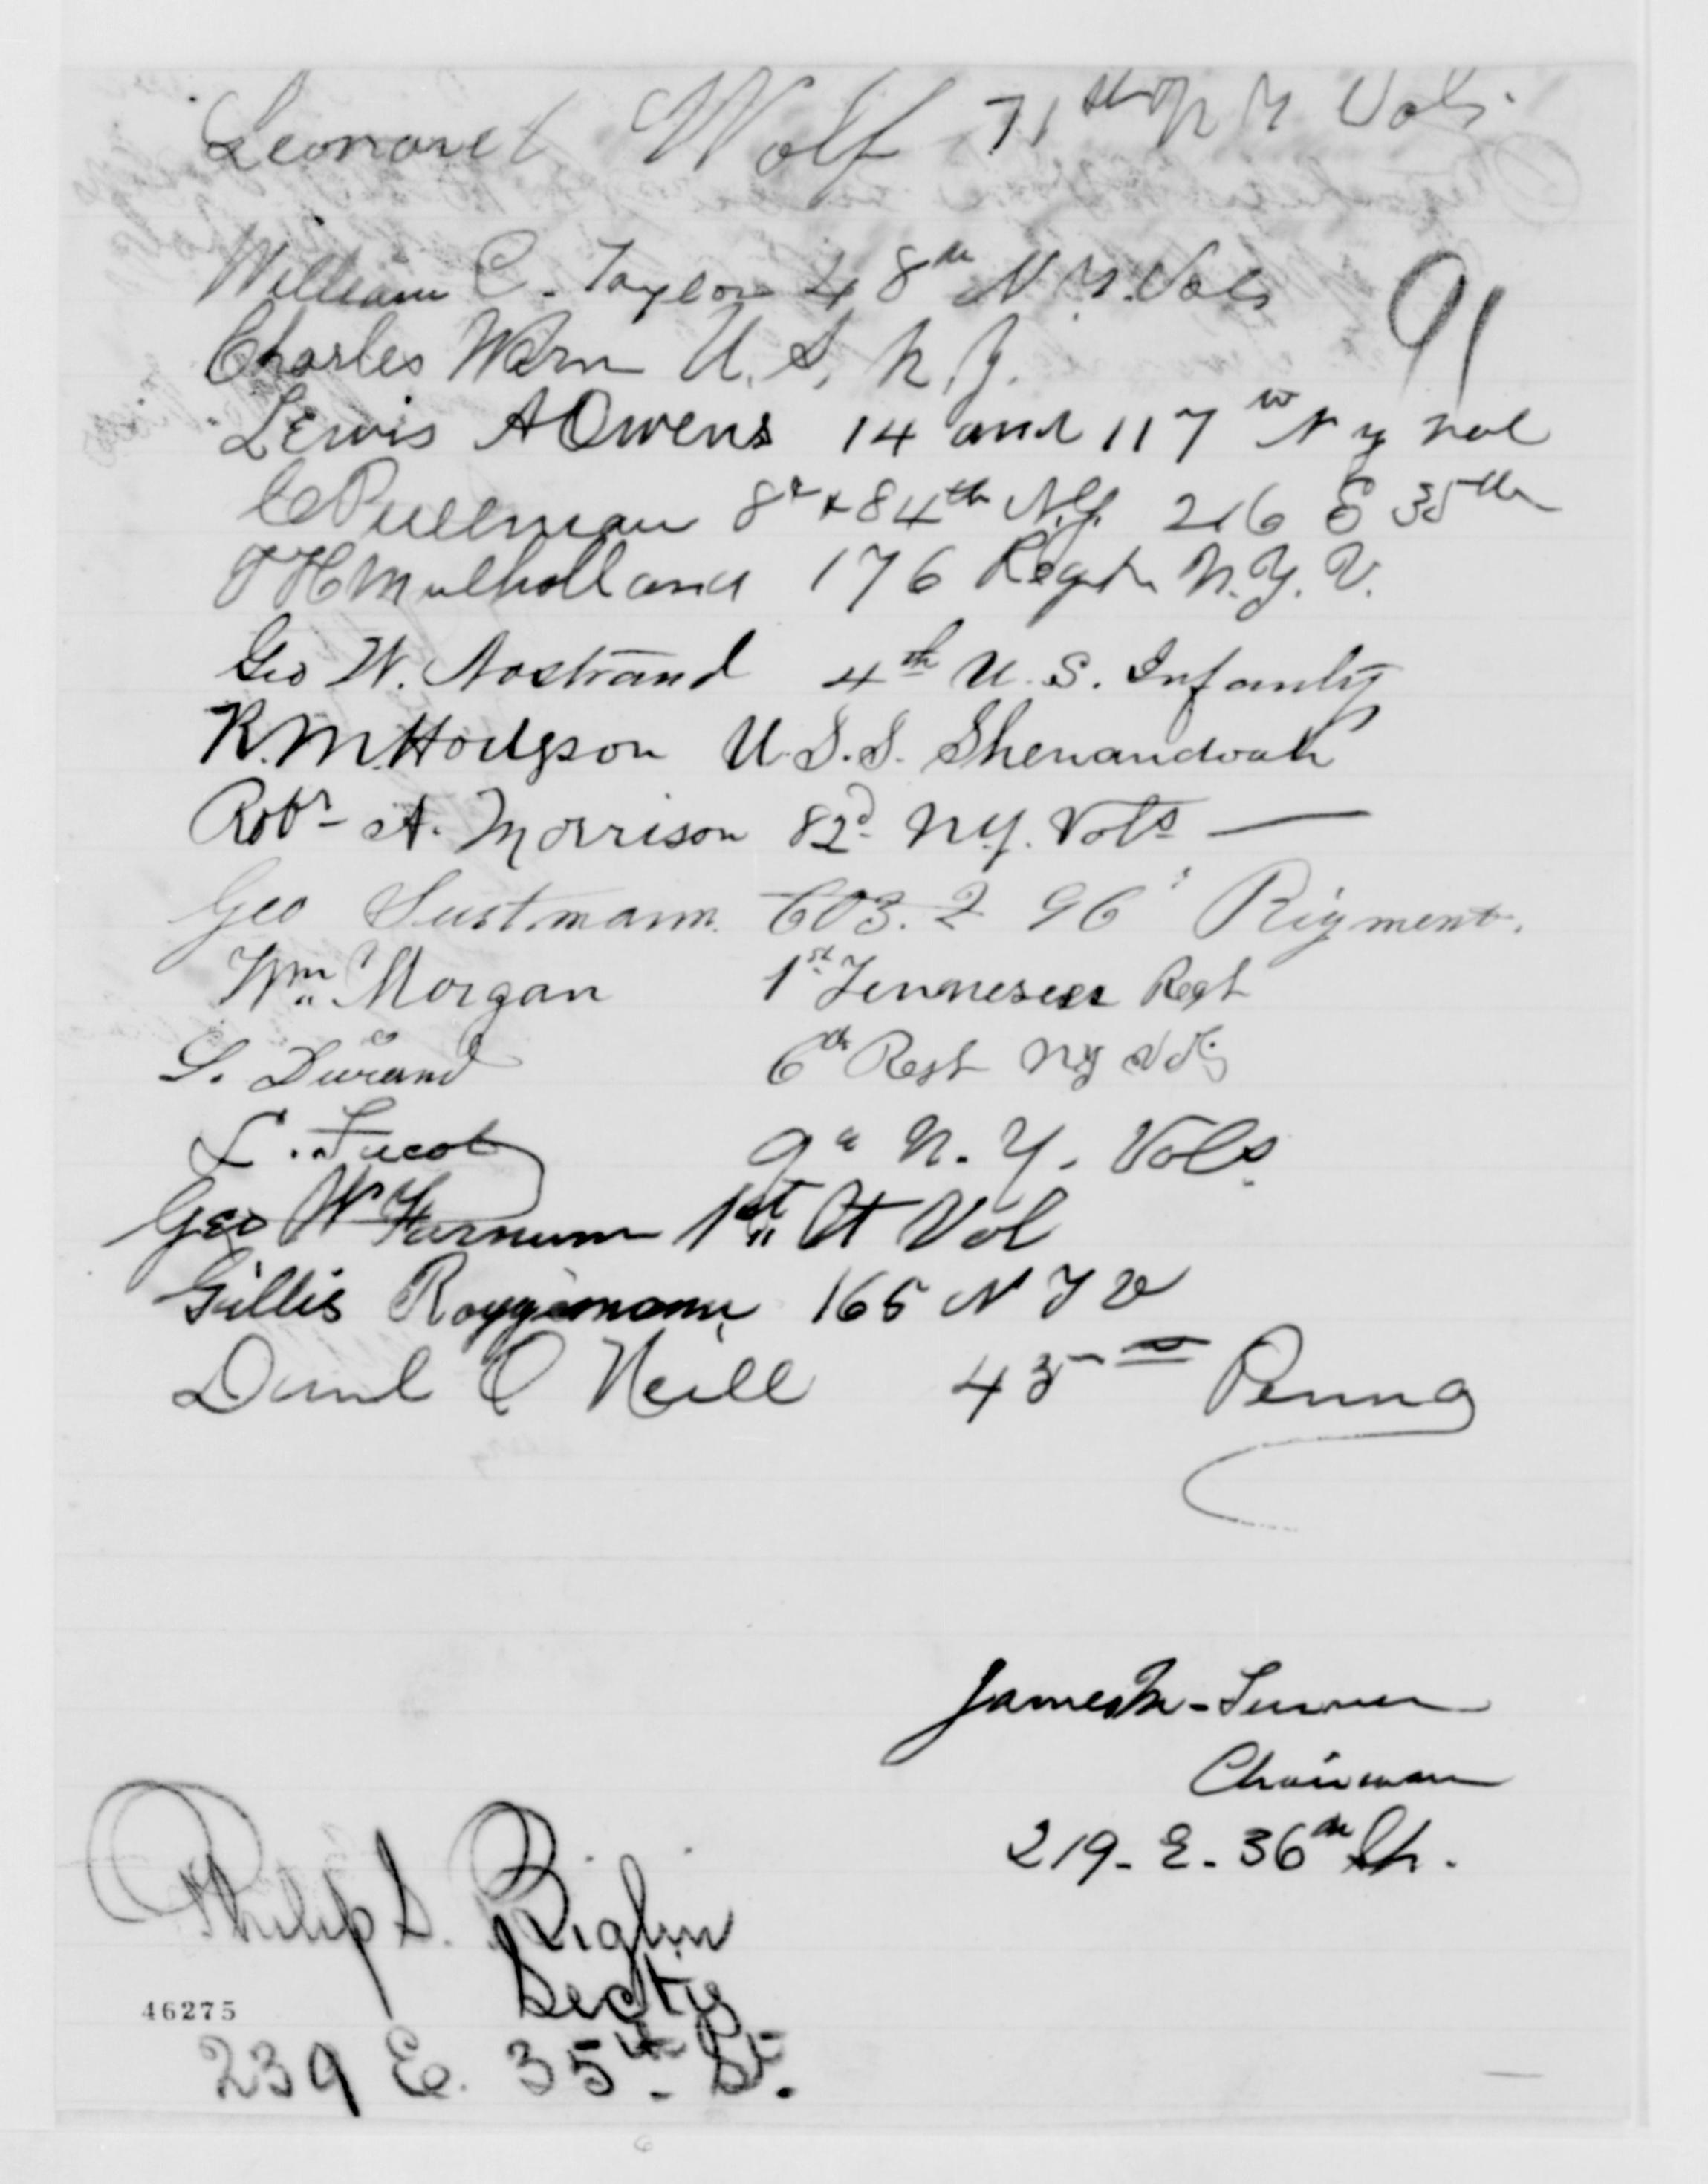 Leonard Wolf 71st N Y Vols.
William C. Taylor 48th N.Y. Vols
91
Charles Warn U.S.N.Y.
Lewis A Owens 14 and 117th N y vol
C Pullman 8th & 84th N.Y. 216 E 35th
T H Mulholland 176 Regt N.Y.V.
Geo W. Nostrand 4th U.S. Infantry
R.M. Hodgson U.S.S. Shenandoah
Robt A. Morrison 82d N.Y. Vols
Geo Sustmann 96 Rigment.
Wm Morgan 1st Tennessee Regt
L. Durand 6th Regt NY Vols
L. 9th N.Y. Vols
Geo W Farnum 1st Ct Vol
Gillis Roggemann 165 N Y V
Danl O Neill 45th Penna
James M. Turner
Chairman
219. E. 36th St.
Philip S. Biglin
Secty
46275
239 E. 35th St.